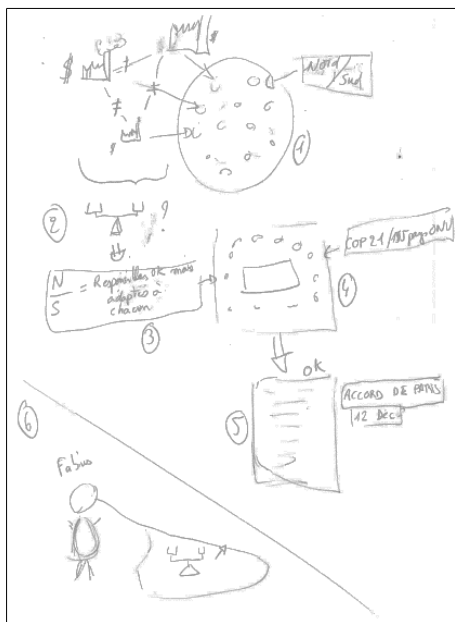 $
≠
Nord/
Sud
≠
≠
$
①
②
?
N
S
= Responsables ok mais
adaptés à
chacun
③
COP21/195 pays ONU
④
OK
⑤
ACCORD DE PARIS
12 Déc
⑥
Fabius